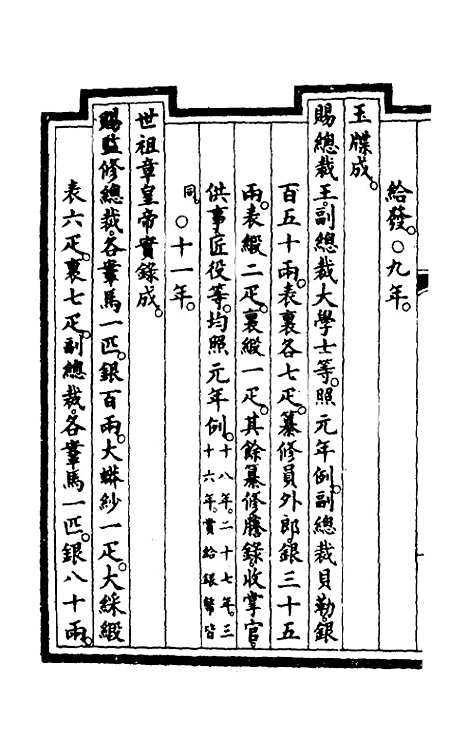 給發。○九年。
玉牒成。
賜總裁王。副總裁大學士等。照元年例。副總裁貝勒。銀
百五十兩。表裏各七疋。纂修員外郎。銀三十五
兩。表緞二疋。裏緞一疋。其餘纂修謄錄。收掌官。
供事匠役等。均照元年例。十八年。二十七年。三
十六年。賞給銀幣皆
同。○十一年。
世祖章皇帝實錄成。
賜監修總裁。各鞌馬一匹。銀百兩。大蟒紗一疋。大綵緞
表六疋。裏七疋。副總裁。各鞌馬一匹。銀八十兩。